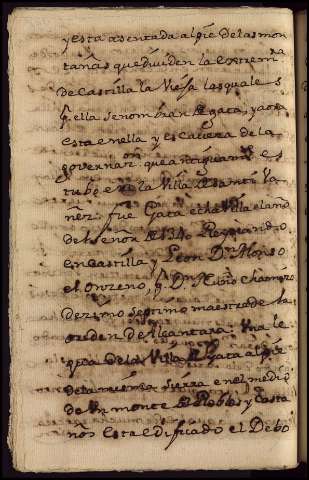 y esta asentada al pie de las mon
tañas que dividen la extrem.ra
de Castilla la Vieja las quales
p.r ella se nombran de gata, y aora
esta en ella y es Cavera de la
governa.on que antiguam.te es
tubo en la Villa de Santi Va
ñez. fue Gata echa Villa el año
del señor de 13 Reynando
en Castilla y Leon D.n Alonso
el Onzeno, y D.n Chamizo
dezimo septimo maestre de la
orden de Alcantara. Una le
gua de la Villa de Gata al pie
desta mesma sierra en el medio
de Un monte de Robles y Casta
ños esta edificado el Debo